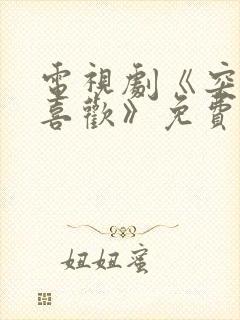 電視劇《突
喜歡》免費
妞妞蜜